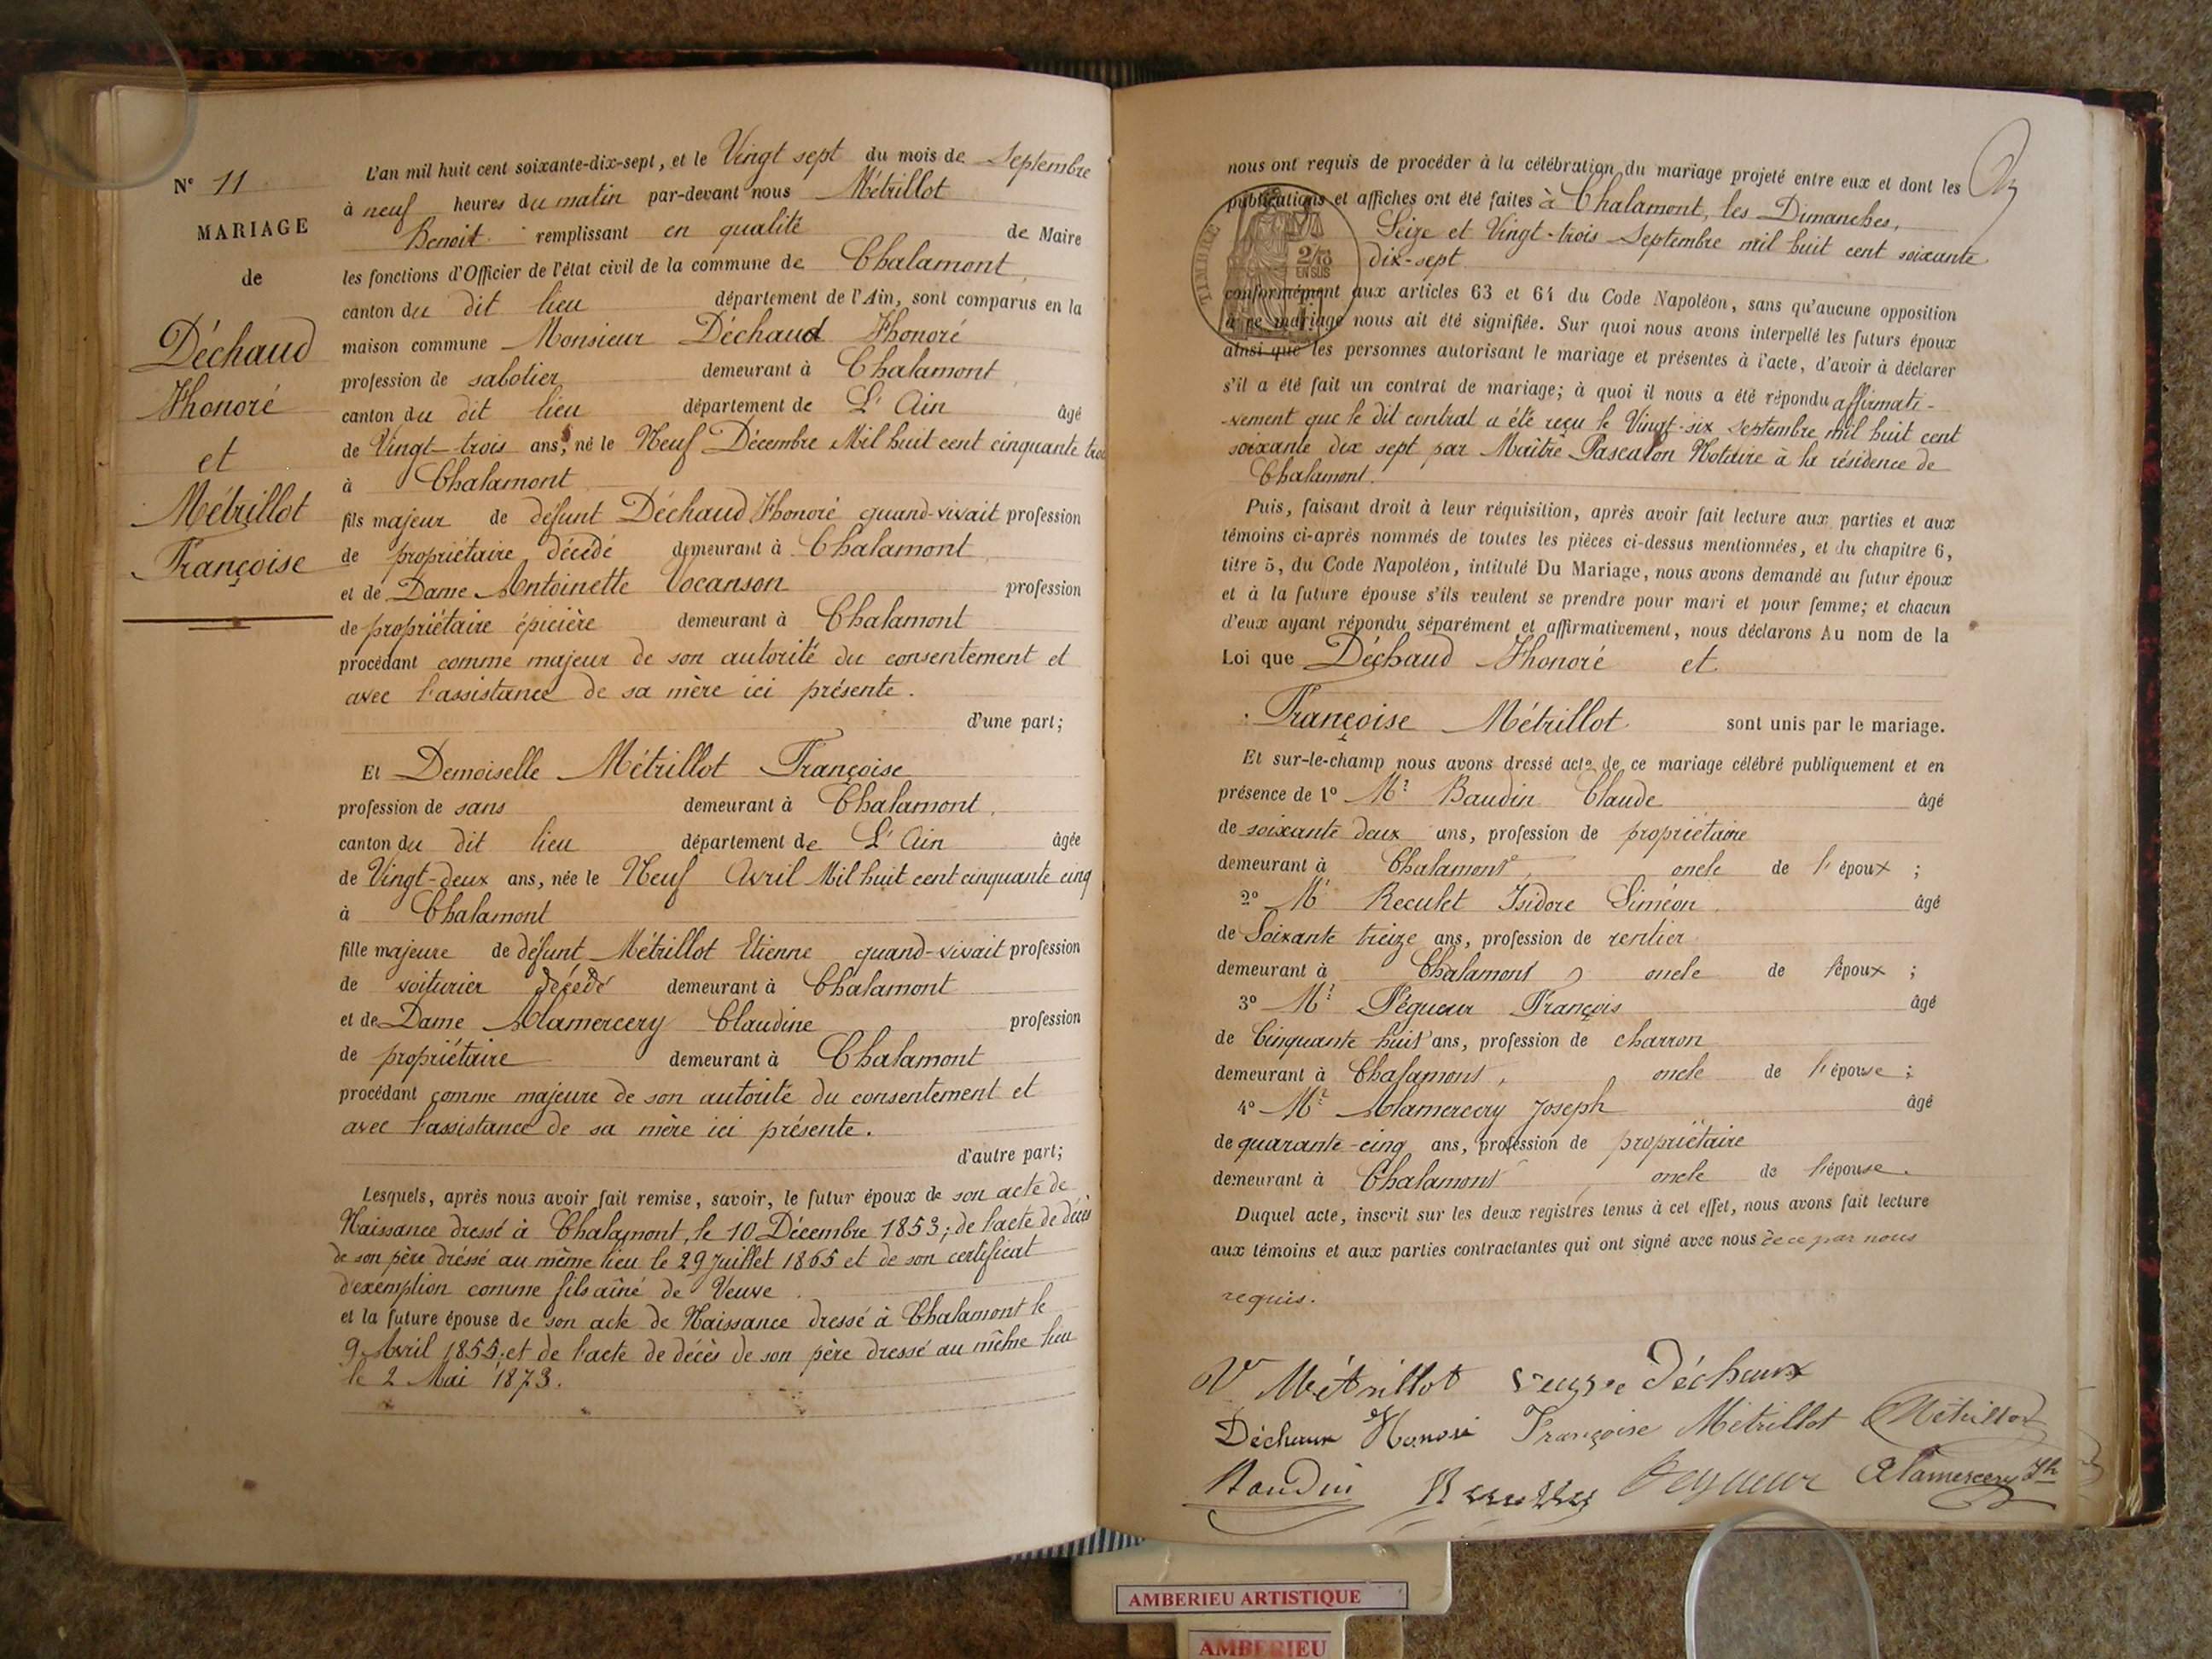 N° 11
MARIAGE
de
Déchaud
Honoré
et
Métrillot
Françoise
L'an mil huit cent soixante-dix-sept, et le Vingt sept du mois de Septembre
à neuf heures du matin par-devant nous Métrillot
Benoit remplissant en qualité de Maire
les fonctions d'Officier de l'état civil de la commune de Chalamont,
canton du dit lieu département de l'Ain, sont comparus en la
maison commune Monsieur Déchaud Honoré
profession de sabotier demeurant à Chalamont,
canton du dit lieu département de L'Ain âgé
de Vingt-trois ans, né le Neuf Décembre Mil huit cent cinquante trois
à Chalamont
fils majeur de défunt Déchaud Honoré quand-vivait profession
de propriétaire, décédé demeurant à Chalamont
et de Dame Antoinette Vocanson profession
de propriétaire épicière demeurant à Chalamont
procédant comme majeur de son autorité du consentement et
avec l'assistance de sa mère ici présente.
d'une part;
Et Demoiselle Métrillot Françoise
profession de sans demeurant à Chalamont,
canton du dit lieu département de L'Ain âgée
de Vingt-deux ans, née le Neuf Avril Mil huit cent cinquante cinq
à Chalamont
fille majeure de défunt Métrillot Etienne quand-vivait profession
de voiturier décédé demeurant à Chalamont
et de Dame Alamercery Claudine profession
de propriétaire demeurant à Chalamont
procédant comme majeure de son autorité du consentement et
avec l'assistance de sa mère ici présente.
d'autre part;
Lesquels, après nous avoir fait remise, savoir, le futur époux de son acte de
Naissance dressé à Chalamont, le 10 Décembre 1853; de l'acte de décès
de son père dréssé au même lieu le 29 Juillet 1865 et de son certificat
d'exemption comme fils aîné de Veuve.
et la future épouse de son acte de Naissance dressé à Chalamont le
9 Avril 1855; et de l'acte de décès de son père dressé au même lieu
le 2 Mai 1873.
nous ont requis de procéder à la célébration du mariage projeté entre eux et dont les
publications et affiches ont été faites à Chalamont, les Dimanches,
Seize et Vingt-trois Septembre mil huit cent soixante
dix-sept
TIMBRE
2/10
EN SUS
conformément aux articles 63 et 64 du Code Napoléon, sans qu'aucune opposition
à ce mariage nous ait été signifiée. Sur quoi nous avons interpellé les futurs époux
ainsi que les personnes autorisant le mariage et présentes à l'acte, d'avoir à déclarer
s'il a été fait un contrat de mariage; à quoi il nous a été répondu affirmati-
-vement que le dit contrat a été reçu le Vingt-six septembre mil huit cent
soixante dix sept par Maître Pascalon Notaire à la résidence de
Chalamont.
Puis, faisant droit à leur réquisition, après avoir fait lecture aux parties et aux
témoins ci-après nommés de toutes les pièces ci-dessus mentionnées, et du chapitre 6,
titre 5, du Code Napoléon, intitulé Du Mariage, nous avons demandé au futur époux
et à la future épouse s'ils veulent se prendre pour mari et pour femme; et chacun
d'eux ayant répondu séparément et affirmativement, nous déclarons Au nom de la
Loi que Déchaud Honoré et
Françoise Métrillot sont unis par le mariage.
Et sur-le-champ nous avons dressé acte de ce mariage célébré publiquement et en
présence de 1° Mr Baudin Claude âgé
de soixante deux ans, profession de propriétaire
demeurant à Chalamont, oncle de l'époux ;
2° Mr Reculet Isidore Siméon âgé
de Soixante treize ans, profession de rentier
demeurant à Chalamont, oncle de l'époux ;
3° Mr Pégueur François âgé
de Cinquante huit ans, profession de charron
demeurant à Chalamont, oncle de l'épouse ;
4° Mr Alamercery Joseph âgé
de quarante-cinq ans, profession de propriétaire
demeurant à Chalamont, oncle de l'épouse.
Duquel acte, inscrit sur les deux registres tenus à cet effet, nous avons fait lecture
aux témoins et aux parties contractantes qui ont signé avec nous de ce par nous
requis.
Ve Métrillot veuve Déchaux
Déchaux Honoré Françoise Métrillot Métrillot
Baudin Pegueur Alamercery Jh
AMBERIEU ARTISTIQUE
AMBERIEU